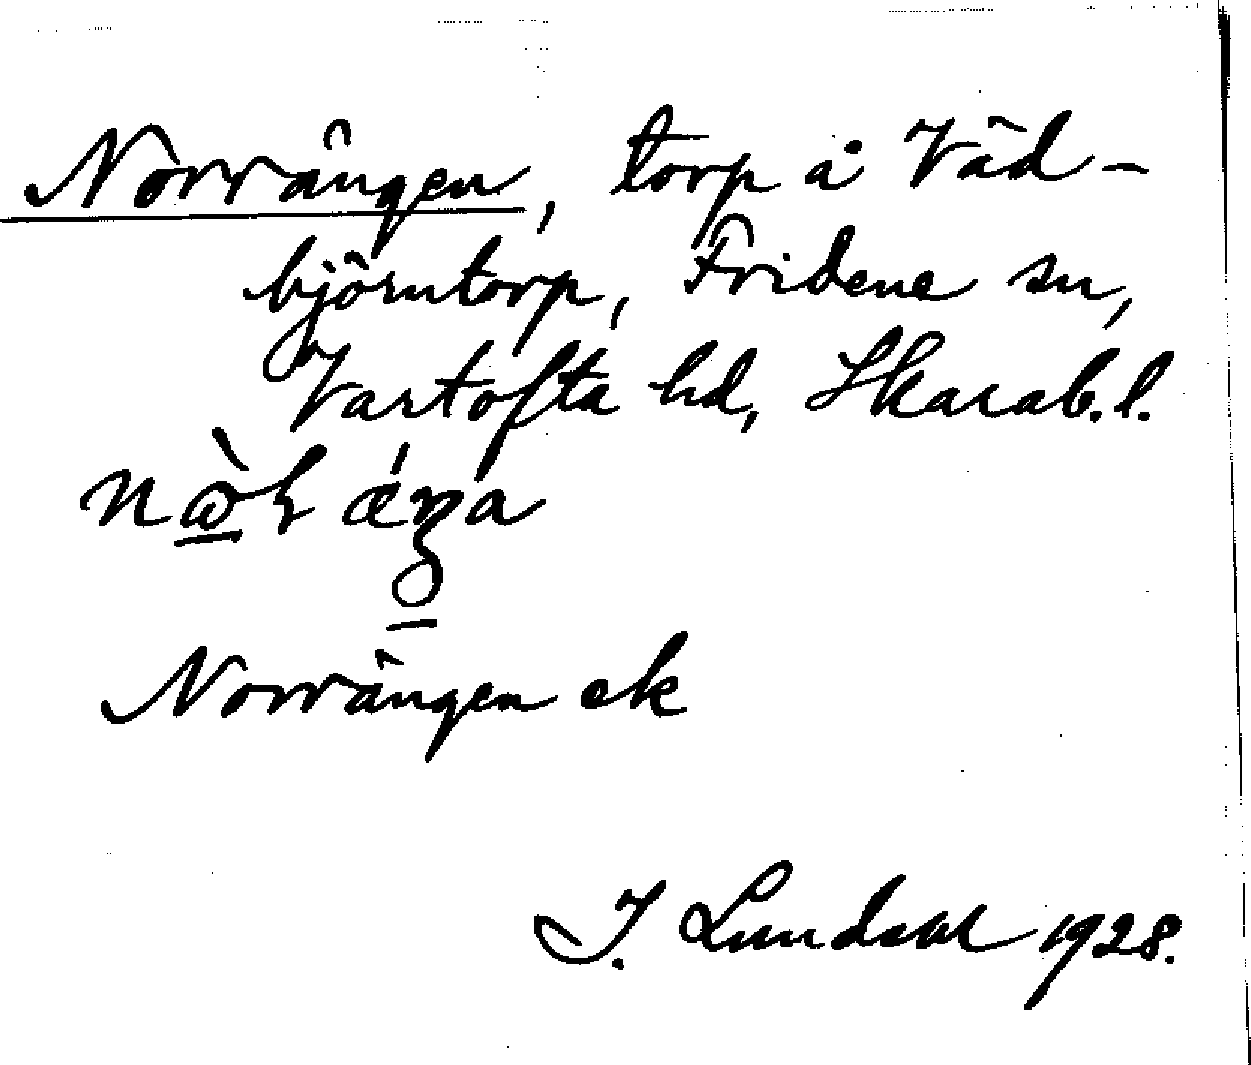 Norrängen, torp å Väd-
björntorp, Fridene sn,
Vartofta hd, Skarab. l.
Norrängen ek
I. Lundahl 1928.